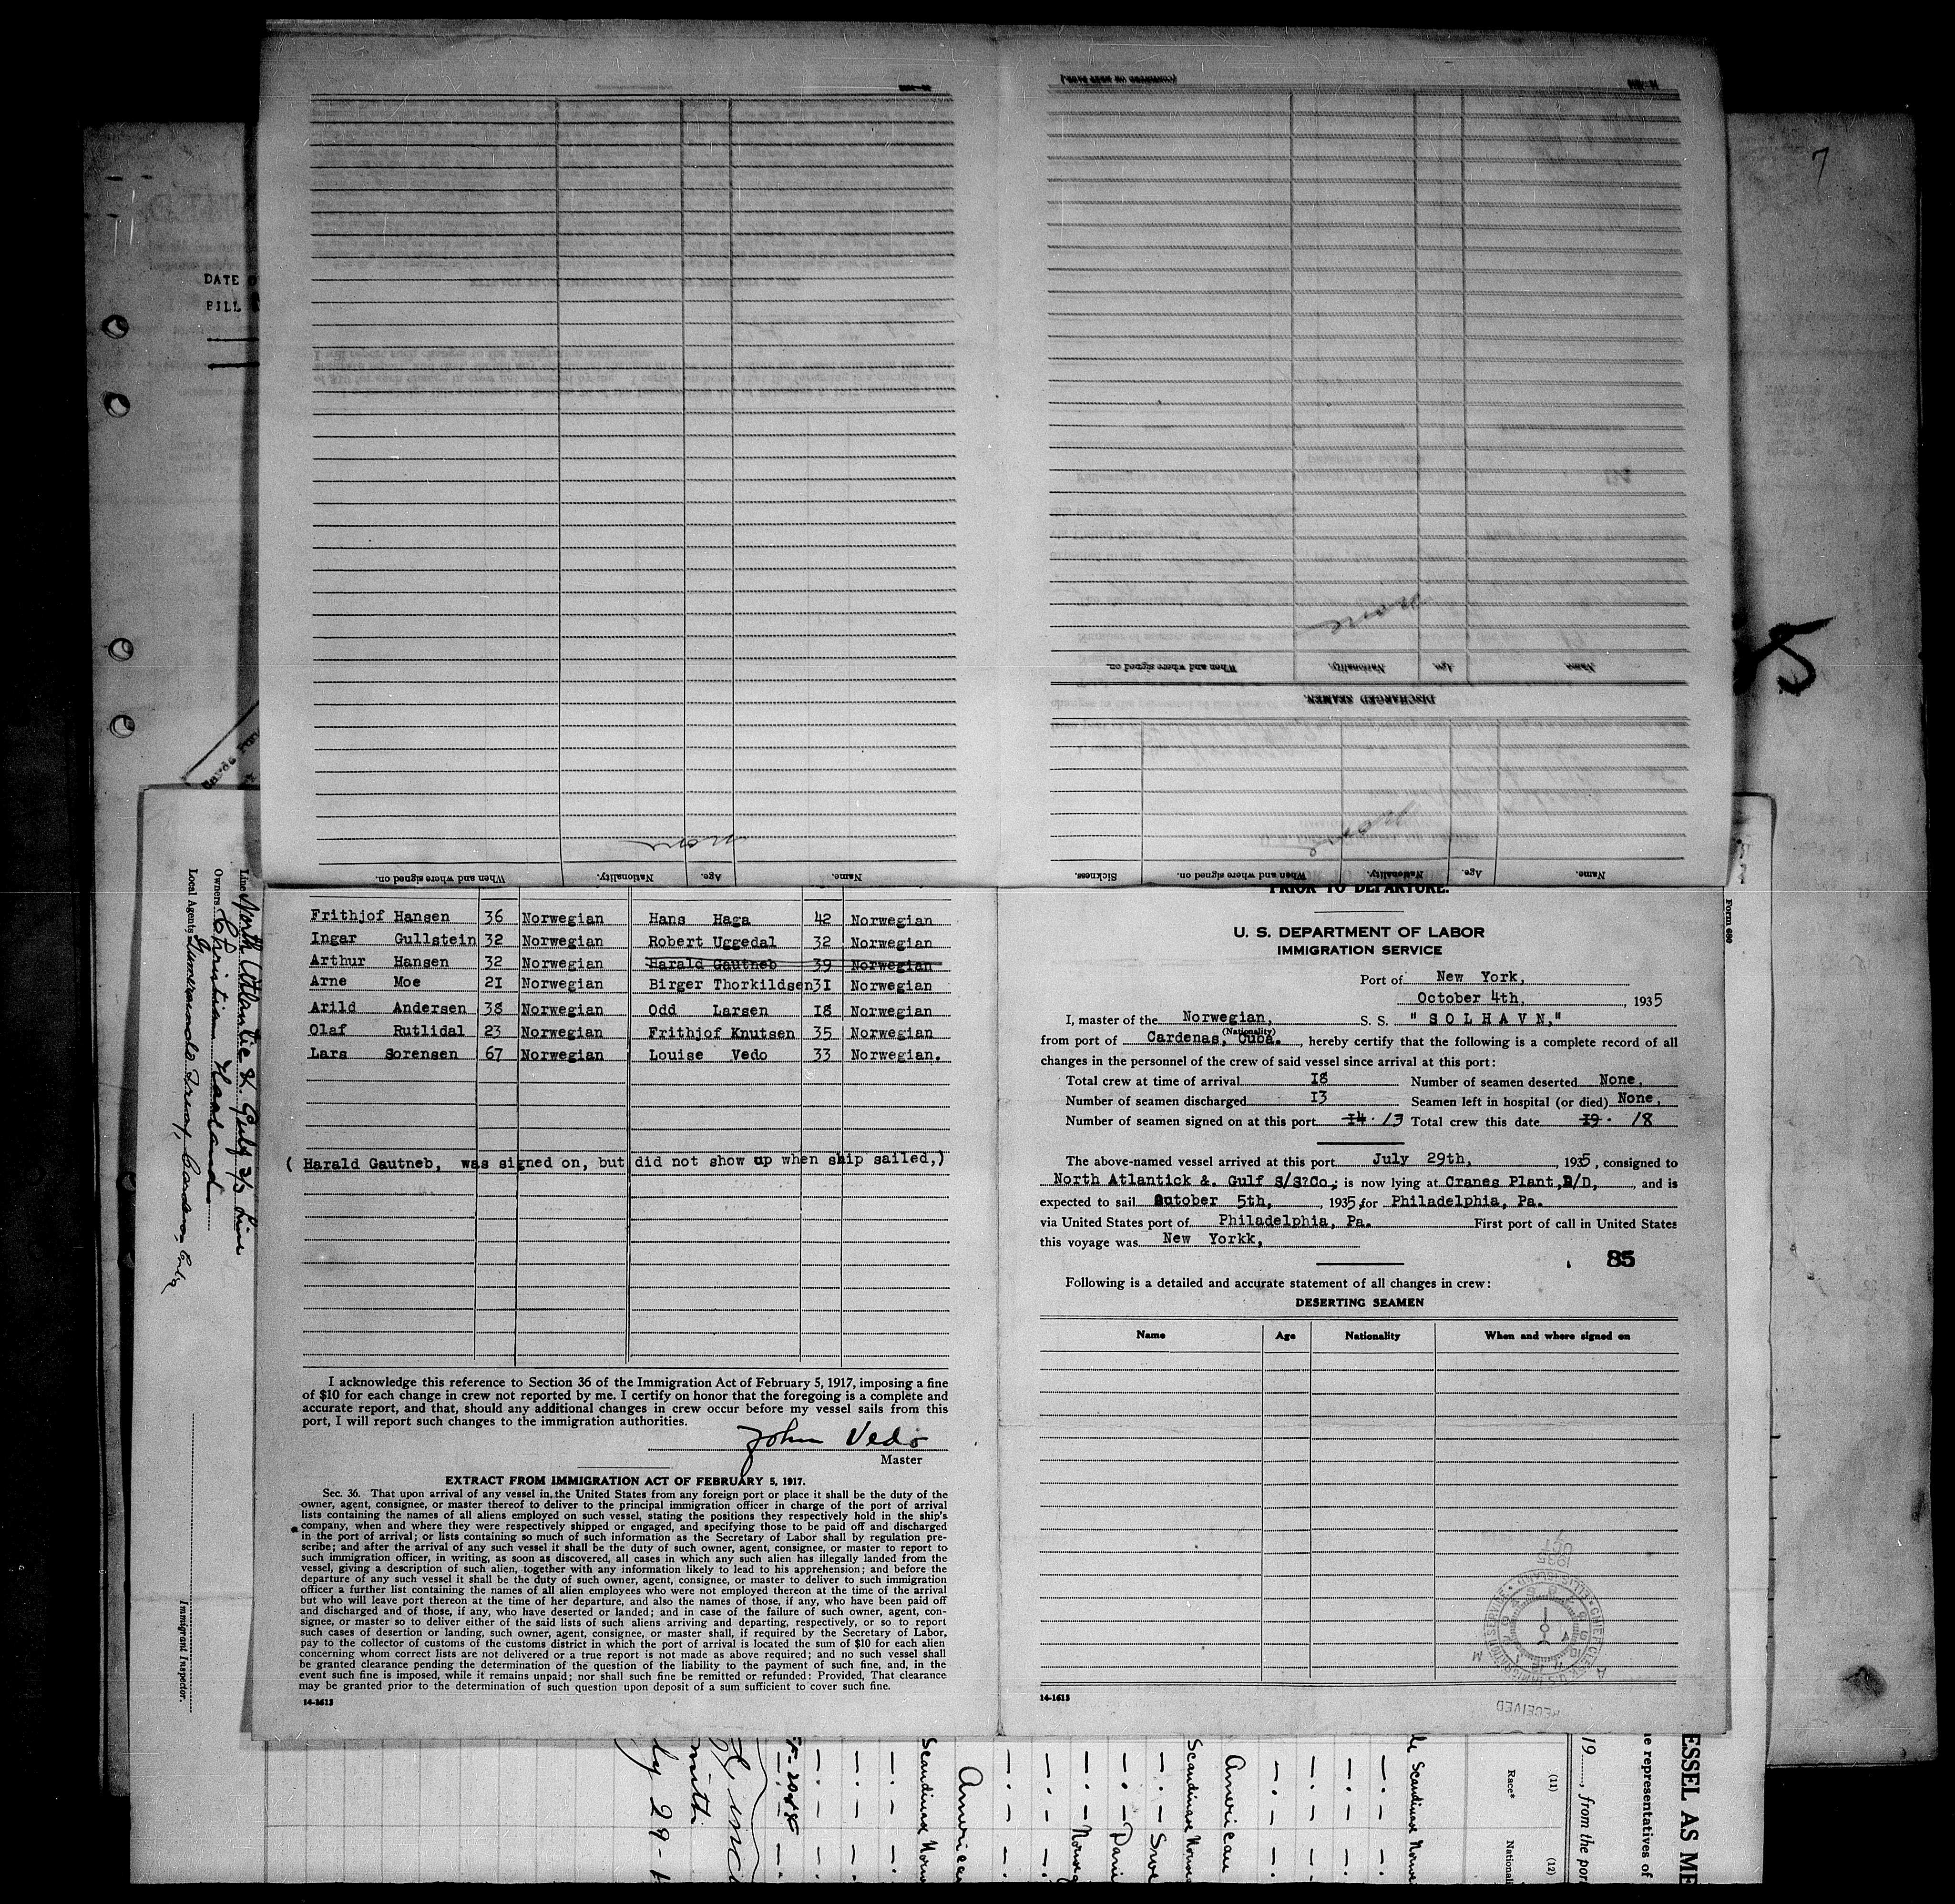 7
DATE
BILL
(Leave back no deserting)
When and where signed on.
Nationality.
Age.
Name.
none
DISCHARGED SEAMEN.
none
Name.
Age.
Nationality.
When and where signed on.
none
Sickness.
When and where signed on.
Nationality.
Age.
Name.
Frithjof Hansen 36 Norwegian Hans Haga 42 Norwegian
Ingar Gullstein 32 Norwegian Robert Uggedal 32 Norwegian
Arthur Hansen 32 Norwegian Harald Gautneb 39 Norwegian
Arne Moe 21 Norwegian Birger Thorkildsen 31 Norwegian
Arild Andersen 38 Norwegian Odd Larsen 18 Norwegian
Olaf Rutlidal 23 Norwegian Frithjof Knutsen 35 Norwegian
Lars Sorensen 67 Norwegian Louise Vedo 33 Norwegian.
( Harald Gautneb, was signed on, but did not show up when ship sailed,)
I acknowledge this reference to Section 36 of the Immigration Act of February 5, 1917, imposing a fine
of $10 for each change in crew not reported by me. I certify on honor that the foregoing is a complete and
accurate report, and that, should any additional changes in crew occur before my vessel sails from this
port, I will report such changes to the immigration authorities.
John Vedo
Master
EXTRACT FROM IMMIGRATION ACT OF FEBRUARY 5, 1917.
Sec. 36. That upon arrival of any vessel in the United States from any foreign port or place it shall be the duty of the
owner, agent, consignee, or master thereof to deliver to the principal immigration officer in charge of the port of arrival
lists containing the names of all aliens employed on such vessel, stating the positions they respectively hold in the ship's
company, when and where they were respectively shipped or engaged, and specifying those to be paid off and discharged
in the port of arrival; or lists containing so much of such information as the Secretary of Labor shall by regulation pre-
scribe; and after the arrival of any such vessel it shall be the duty of such owner, agent, consignee, or master to report to
such immigration officer, in writing, as soon as discovered, all cases in which any such alien has illegally landed from the
vessel, giving a description of such alien, together with any information likely to lead to his apprehension; and before the
departure of any such vessel it shall be the duty of such owner, agent, consignee, or master to deliver to such immigration
officer a further list containing the names of all alien employees who were not employed thereon at the time of the arrival
but who will leave port thereon at the time of her departure, and also the names of those, if any, who have been paid off
and discharged and of those, if any, who have deserted or landed; and in case of the failure of such owner, agent, con-
signee, or master so to deliver either of the said lists of such aliens arriving and departing, respectively, or so to report
such cases of desertion or landing, such owner, agent, consignee, or master shall, if required by the Secretary of Labor,
pay to the collector of customs of the customs district in which the port of arrival is located the sum of $10 for each alien
concerning whom correct lists are not delivered or a true report is not made as above required; and no such vessel shall
be granted clearance pending the determination of the question of the liability to the payment of such fine, and, in the
event such fine is imposed, while it remains unpaid; nor shall such fine be remitted or refunded: Provided, That clearance
may be granted prior to the determination of such question upon deposit of a sum sufficient to cover such fine.
14-1613
PRIOR TO DEPARTURE.
Form 680
U. S. DEPARTMENT OF LABOR
IMMIGRATION SERVICE
Port of New York,
October 4th, , 1935
I, master of the Norwegian, S. S. " S O L H A V N,"
(Nationality)
from port of Cardenas, Cuba. , hereby certify that the following is a complete record of all
changes in the personnel of the crew of said vessel since arrival at this port:
Total crew at time of arrival 18 Number of seamen deserted None,
Number of seamen discharged 13 Seamen left in hospital (or died) None,
Number of seamen signed on at this port 14. 13 Total crew this date 19. 18
The above-named vessel arrived at this port July 29th, , 1935, consigned to
North Atlantick &. Gulf S/S?Co, ; is now lying at Cranes Plant,B/D, , and is
expected to sail October 5th, , 1935, for Philadelphia, Pa.
via United States port of Philadelphia, Pa. First port of call in United States
this voyage was New Yorkk,
85
Following is a detailed and accurate statement of all changes in crew:
DESERTING SEAMEN
Name Age Nationality When and where signed on
1935
OCT 7
CHIEF CLERK U.S. IMMIGRATION SERVICE ELLIS ISLAND
RECEIVED
14-1613
Line North Atlantic & Gulf S/S Line
Owners Christian Haaland
Local Agents
Immigrant Inspector.
Scandinav Norw
American
Norweg
Scandinav Norw
American
Scandinav Norw
Race*
(11)
National
(12)
19 , from the por
e representatives of
ESSEL AS ME